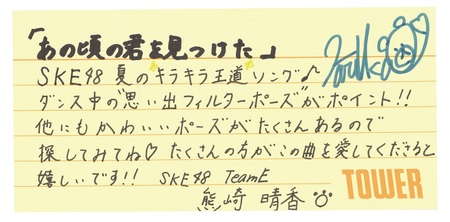 「あの頃の君を見つけた」
SKE48 夏のキラキラ王道ソング♪
ダンス中の"思い出フィルターポーズ"がポイント!!
他にもかわいいポーズがたくさんあるので
探してみてね♡ たくさんの方がこの曲を愛してくださると
嬉しいです!! SKE48 TeamE
熊崎 晴香
TOWER